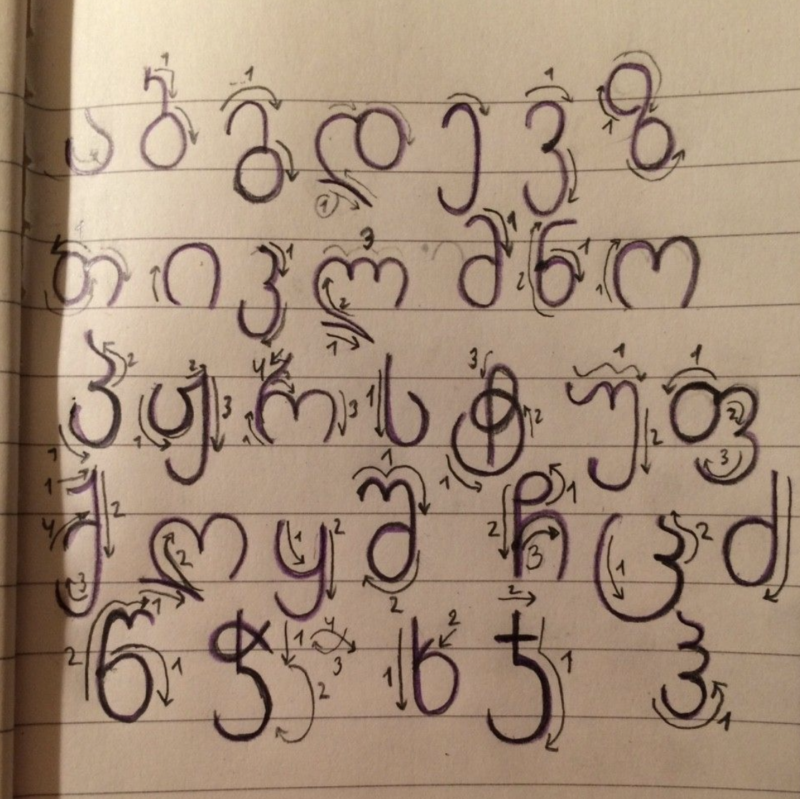 ა ბ გ დ ე ვ ზ
თ ი კ ლ მ ნ ო
პ ჟ რ ს ტ უ ფ
ქ ღ ყ შ ჩ ც ძ
წ ჭ ხ ჯ ჰ